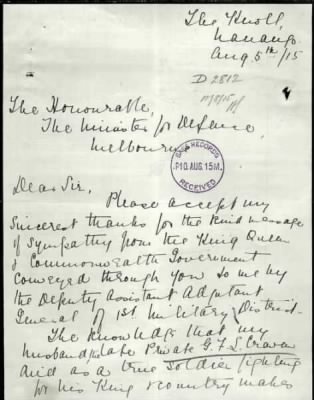 The Knoll,
Nanango.
Aug 5th/15
D 2812
11/8/15
The Honourable,
The Minister for Defence,
Melbourne
BASE RECORDS
P10. AUG. 15M.
RECEIVED
Dear Sir,
Please accept my
sincerest thanks for the kind message
of sympathy from the King Queen
& Commonwealth Government
conveyed through you to me by
the Deputy Assistant Adjutant
General of 1st Military District.
The knowledge that my
husband, late Private G. F. S. Craven
died as a true soldier fighting
for his King & country makes